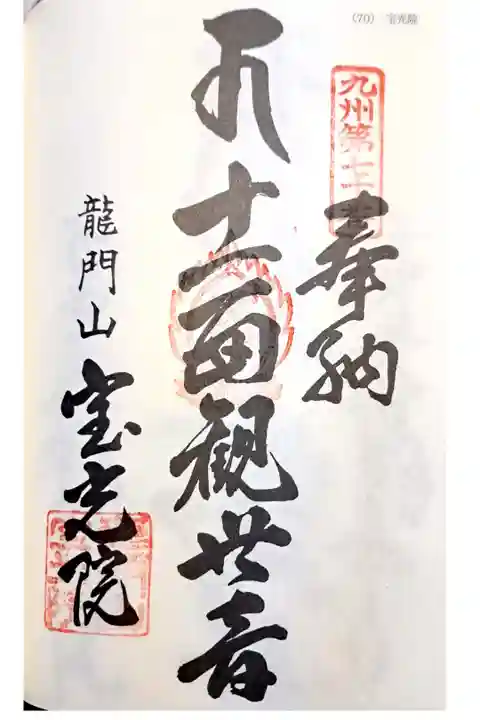 (70) 宝光院
九州第
奉納
十一面観世音
龍門山 宝光院